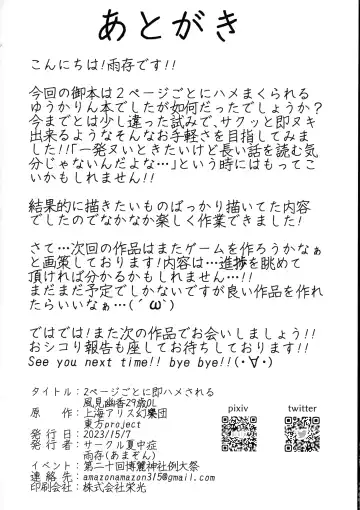 あとがき
こんにちは!雨存です!!
今回の御本は2ページごとにハメまくられる
ゆうかりん本でしたが如何だったでしょうか?
今までとは少し違った試みで、サクッと即ヌキ
出来るようなそんなお手軽さを目指してみま
した!!「一発ヌいときたいけど長い話を読む気
分じゃないんだよな…」という時にはもってこ
いかもしれません!!
結果的に描きたいものばっかり描いてた内容
でしたのでなかなか楽しく作業できました!
さて…次回の作品はまたゲームを作ろうかなぁ
と画策しております!内容は…進捗を眺めて
頂ければ分かるかもしれません…!!
まだまだ予定でしかないですが良い作品を作れ
たらいいなぁ…(´ω`)
ではでは!また次の作品でお会いしましょう!!
おシコり報告も座してお待ちしております!!
See you next time!! bye bye!!(・∀・)
タイトル:2ページごとに即ハメされる
風見幽香29歳OL
原 作:上海アリス幻樂団
東方project
発行日:2023/15/7
発行者:サークル夏中症
雨存(あまぞん)
イベント:第二十回博麗神社例大祭
連絡先:amazonamazon315@gmail.com
印刷会社:株式会社栄光
pixiv
twitter